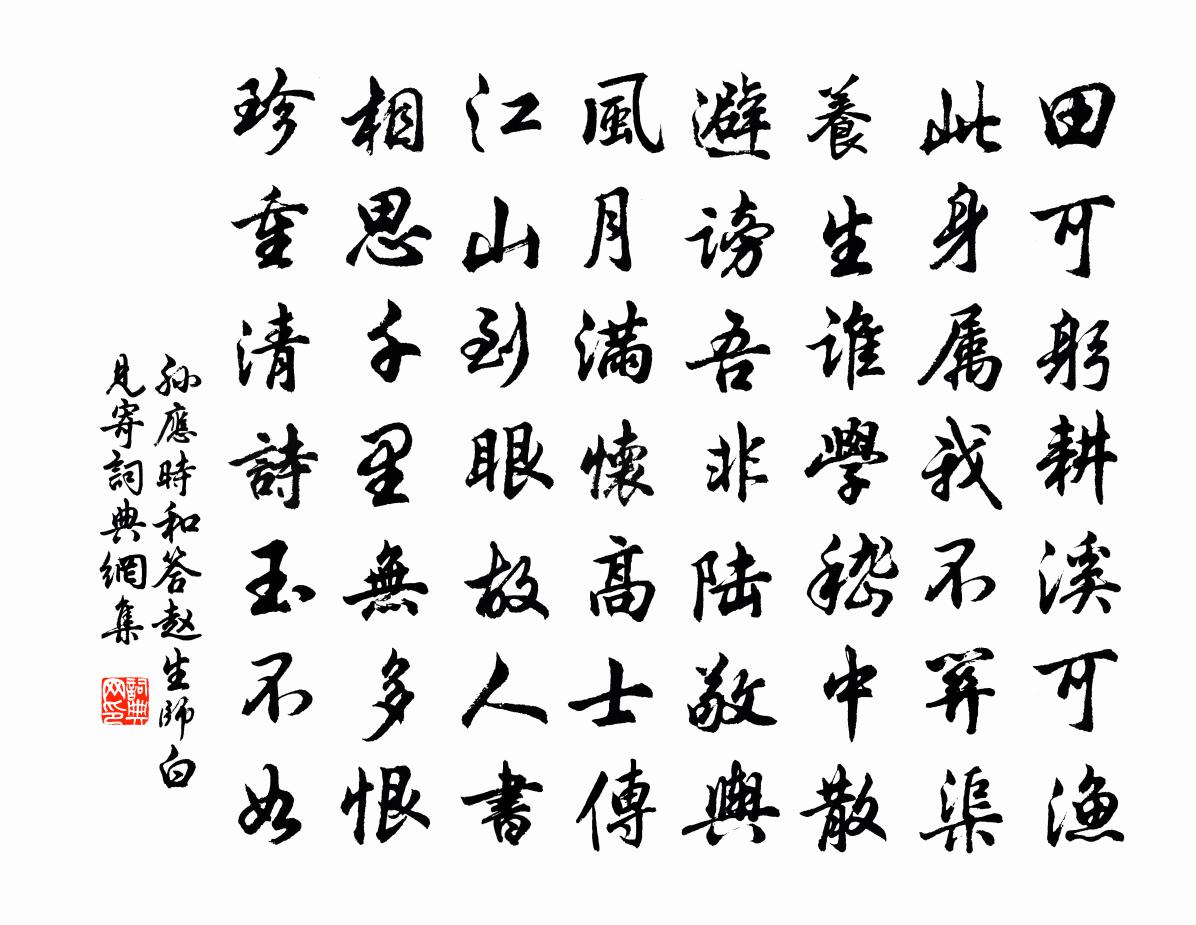 田可躬耕溪可漁
此身属我不關渠
養生誰學嵇中散
避謗吾非陆敬輿
風月滿懷高士傳
江山到眼故人書
相思千里無多恨
珍重清詩玉不如
孙應時和答赵生師白
見寄詞典網集
詞典网印